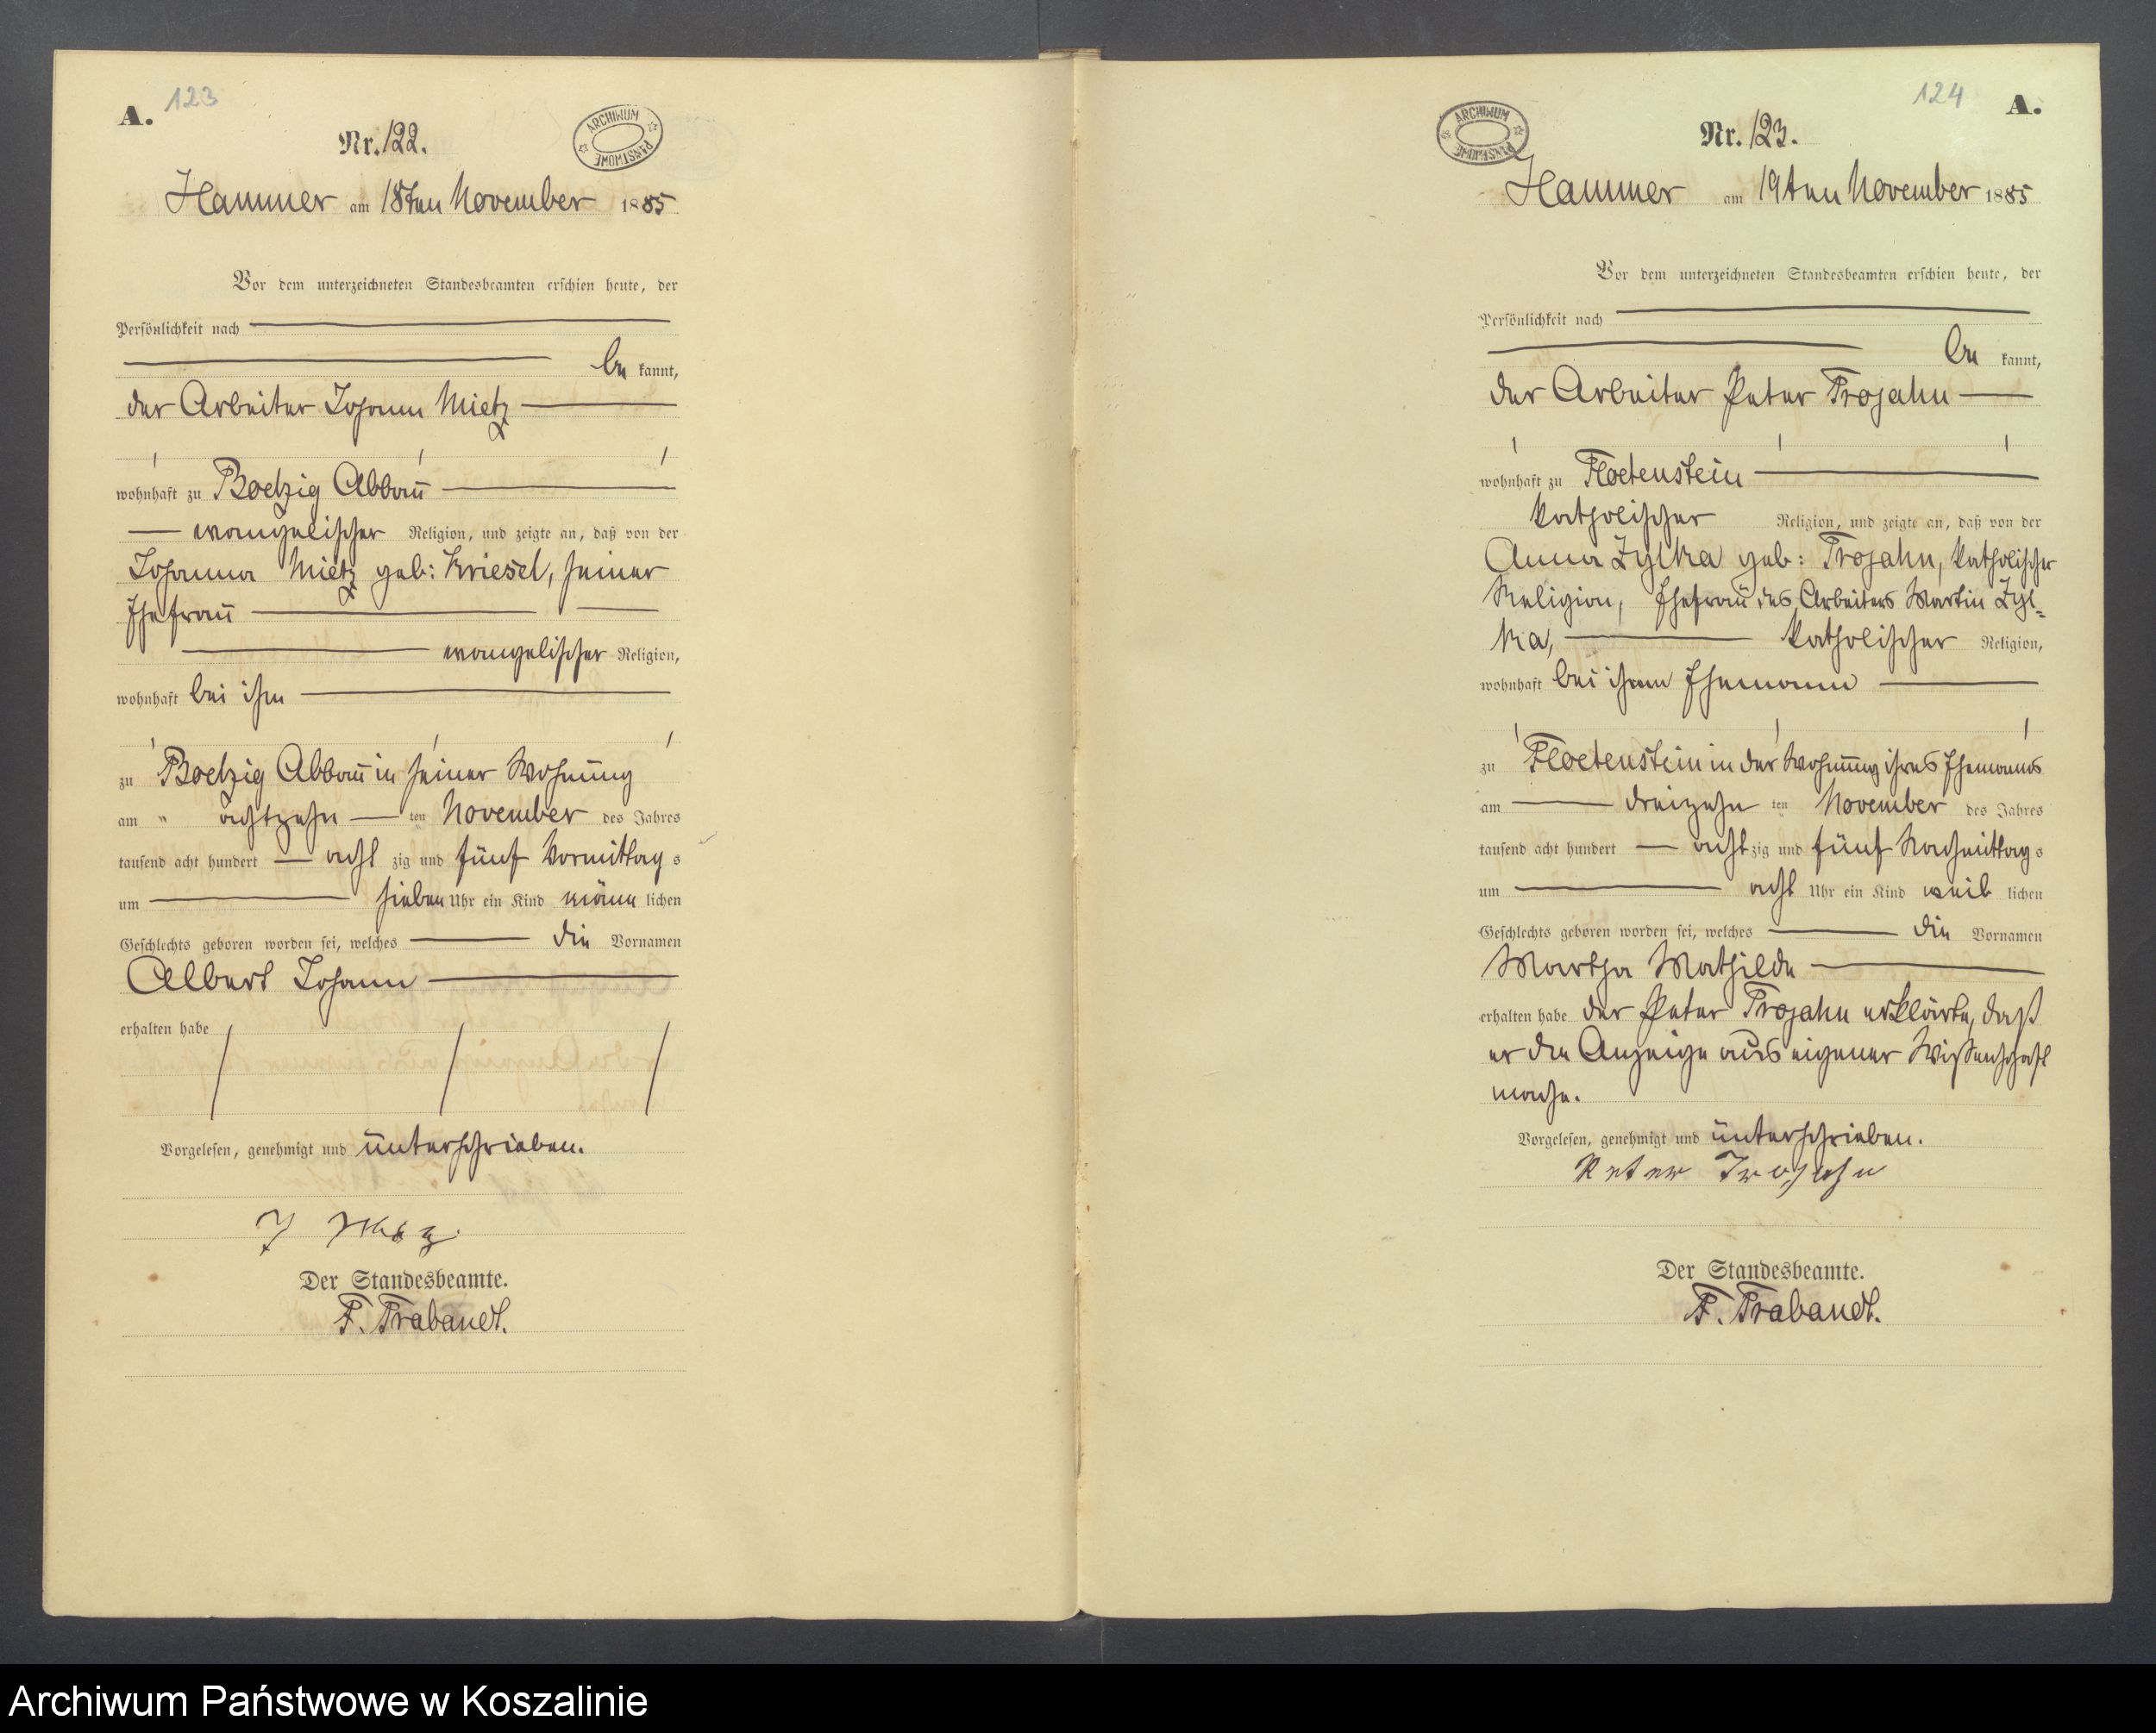 A.
123
Nr. 122.
ARCHIWUM PAŃSTWOWE
Hammer am 18ten November 1885
Vor dem unterzeichneten Standesbeamten erschien heute, der
Persönlichkeit nach
be kannt,
der Arbeiter Johann Mietz
wohnhaft zu Boelzig Abbau
evangelischer Religion, und zeigte an, daß von der
Johanna Mietz geb: Kriesel, seiner
Ehefrau
evangelischer Religion,
wohnhaft bei ihm
zu Boelzig Abbau in seiner Wohnung
am " achtzehn ten November des Jahres
tausend acht hundert acht zig und fünf Vormittag s
um sieben Uhr ein Kind männ lichen
Geschlechts geboren worden sei, welches die Vornamen
Albert Johann
erhalten habe
Vorgelesen, genehmigt und unterschrieben.
J
Der Standesbeamte.
F. Trabandt.
124
A.
ARCHIWUM PAŃSTWOWE
Nr. 123.
Hammer am 19ten November 1885
Vor dem unterzeichneten Standesbeamten erschien heute, der
Persönlichkeit nach
be kannt,
der Arbeiter Peter Trojahn
wohnhaft zu Floetenstein
katholischer Religion, und zeigte an, daß von der
Anna Zylka geb: Trojahn, katholischer
Religion, Ehefrau des Arbeiters Martin Zyl-
ka, katholischer Religion,
wohnhaft bei ihrem Ehemann
zu Floetenstein in der Wohnung ihres Ehemanns
am dreizehn ten November des Jahres
tausend acht hundert acht zig und fünf Nachmittag s
um acht Uhr ein Kind weib lichen
Geschlechts geboren worden sei, welches die Vornamen
Martha Mathilde
erhalten habe der Peter Trojahn erklärte, daß
er die Anzeige aus eigener Wissenschaft
mache.
Vorgelesen, genehmigt und unterschrieben.
Peter Trojahn
Der Standesbeamte.
F. Trabandt.
Archiwum Państwowe w Koszalinie